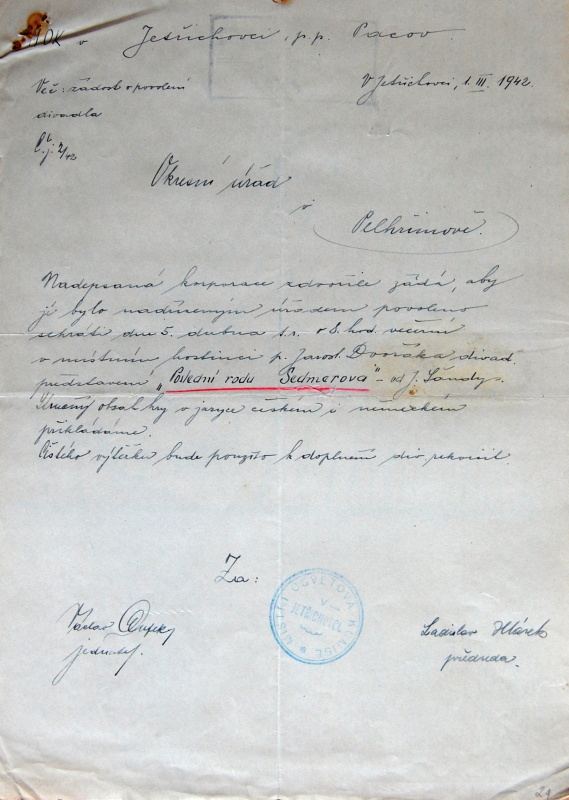 MOK v Jetřichovci, p.p. Pacov.
Věc: žádost o povolení
V Jetřichovci, 1. III. 1942.
divadla
Č.j. 2/42
Okresní úřad
v
Pelhřimově.
Nadepsaná korporace zdvořile žádá, aby
jí bylo nadřízeným úřadem povoleno
sehráti dne 5. dubna t.r. o 8. hod. večerní
v místním hostinci p. Jarosl. Dvořáka divad.
představení „Poslední rodu Sedmerova" - od J. Šandy.
obsah hry v jazyce českém i německém
přikládáme.
Čistého výtěžku bude použito k doplnění div. rekvisit.
Za:
MÍSTNÍ OSVĚTOVÁ KOMISE
V
JETŘICHOVCI
Václav
jednatel.
Ladislav
předseda.